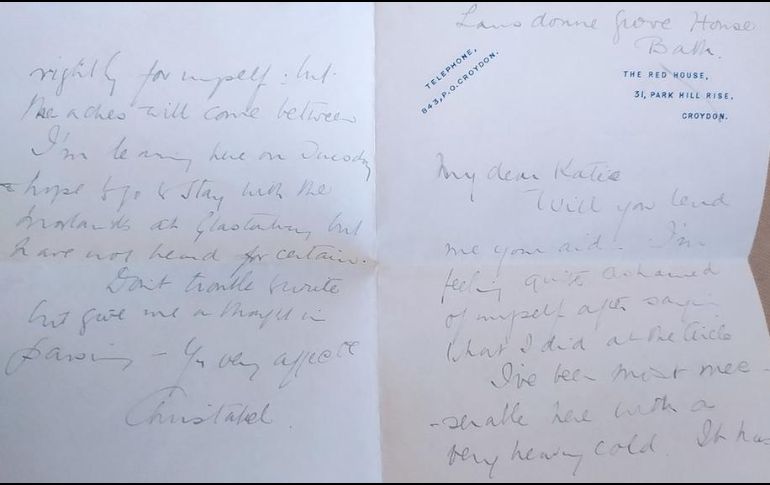 Lansdowne Grove House
Bath.
TELEPHONE,
843, P.O. CROYDON.
THE RED HOUSE,
31, PARK HILL RISE,
CROYDON.
My dear Katie
Will you lend
me your aid. I'm
feeling quite ashamed
of myself after saying
what I did at the Circle
I've been most mee-
-serable here with a
very heavy cold. It has
rightly for myself: but
the aches will come between
I'm leaving here on Tuesday
hope to go & stay with the
at Glastonbury but
have not heard for certain.
Don't trouble to write
but give me a thought in
passing - Yr very affecte
Christabel.